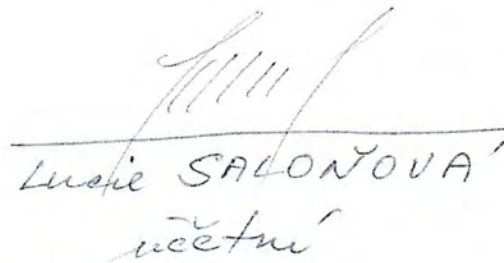 Lucie SALOŇOVÁ
účetní